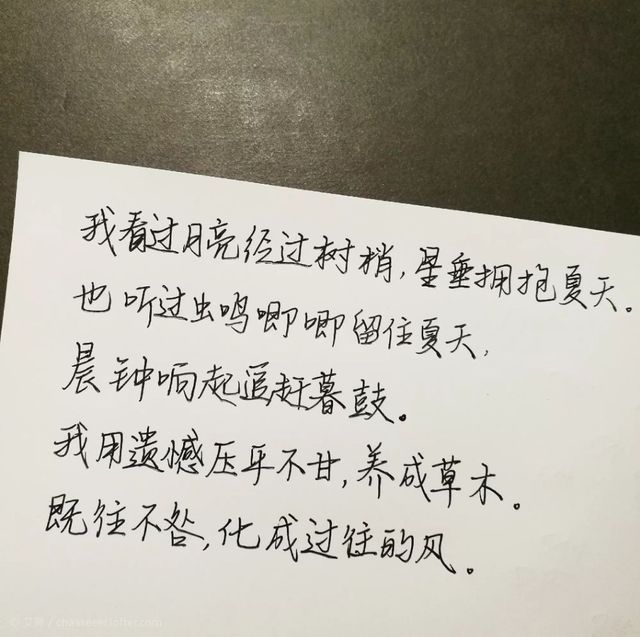 我看过月亮经过树梢,星垂拥抱夏天。
也听过虫鸣唧唧留住夏天,
晨钟响起追赶暮鼓。
我用遗憾压平不甘,养成草木。
既往不咎,化成过往的风。